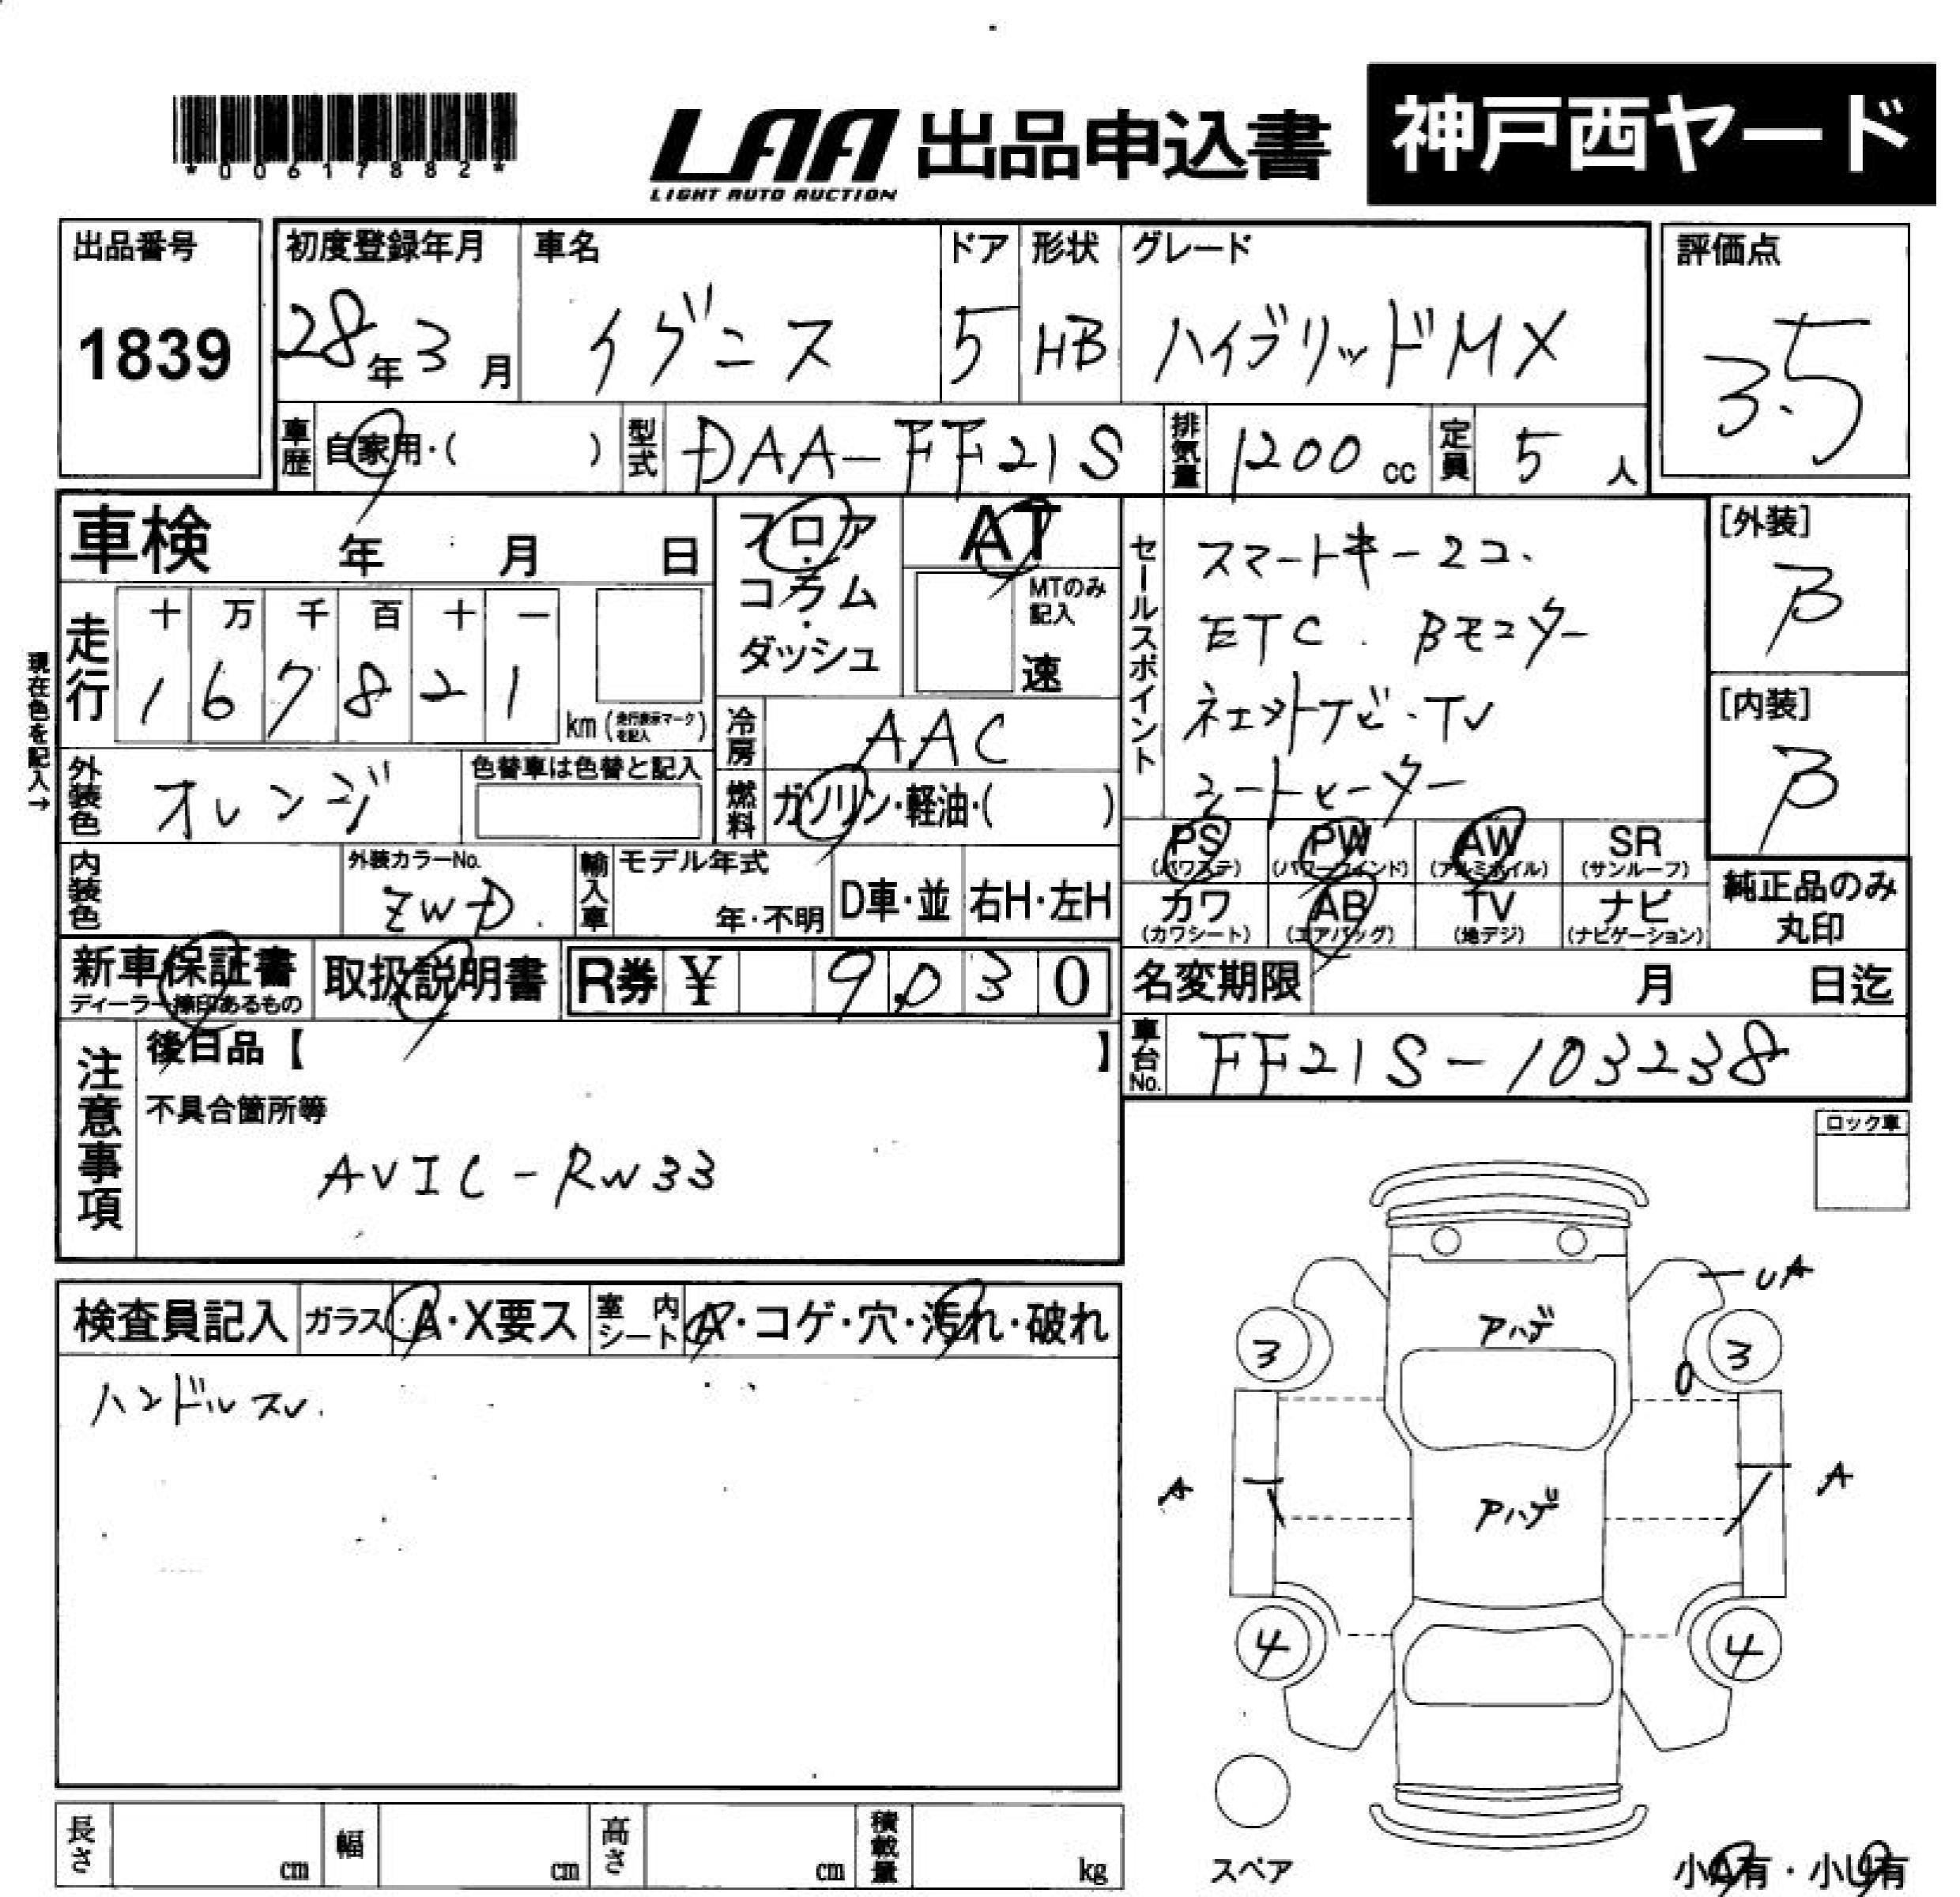 *00617882*
LAA 出品申込書 神戸西ヤード
LIGHT AUTO AUCTION
出品番号 初度登録年月 車名 ドア 形状 グレード 評価点
1839 28年3月 イグニス 5 HB ハイブリッドMX 3.5
車歴 自家用・( ) 型式 DAA-FF21S 排気量 1200cc 定員 5人
車検 年 月 日 フロア・コラム・ダッシュ AT
MTのみ記入 速
セールスポイント
スマートキー2コ.
ETC. Bモニター
ネェットナビ・TV
シートヒーター
[外装] B
[内装] B
現在色を記入→
走行 十 万 千 百 十 一
1 6 7 8 2 1 km(走行表示マークを記入)
冷房 AAC
外装色 オレンジ 色替車は色替と記入
燃料 ガソリン・軽油・( )
PS (パワステ) PW (パワーウインド) AW (アルミホイル) SR (サンルーフ)
カワ (カワシート) AB (エアバッグ) TV (地デジ) ナビ (ナビゲーション)
純正品のみ丸印
内装色 外装カラーNo. ZWD. 輸入車 モデル年式 年・不明 D車・並 右H・左H
新車保証書 ディーラー捺印あるもの 取扱説明書 R券 ¥ 9,030
名変期限 月 日迄
車台No. FF21S-103238
注意事項 後日品【 】
不具合箇所等
AVIC-RW33
ロック車
検査員記入 ガラス A・X要ス 室内シート A・コゲ・穴・汚れ・破れ
ハンドルスレ.
UA
アハゲ
3 3
0
A アハゲ A
4 4
スペア
小A有・小U有
長さ cm 幅 cm 高さ cm 積載量 kg